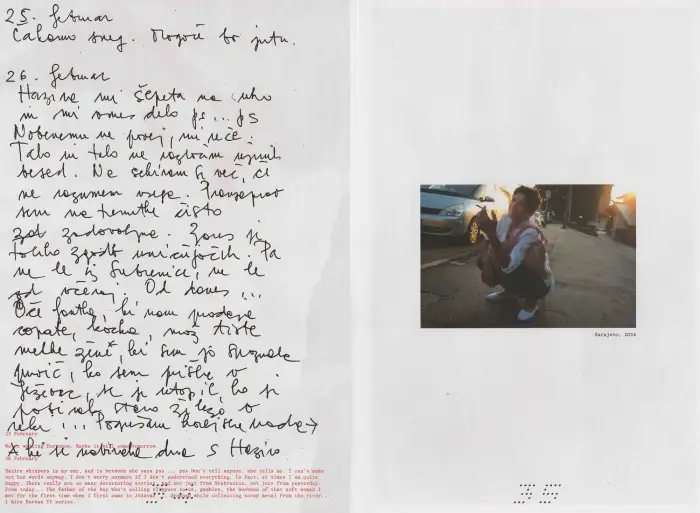 25. februar
Čakamo sneg. Mogoče bo jutri.
26. februar
Hazira mi šepeta na uho
in mi vmes dela ps ... ps
Nobenemu ne povej, mi reče.
Tako in tako ne razločim njenih
besed. Ne sekiram se več, če
ne razumem vsega. Pravzaprav
sem na trenutke čisto
zadovoljna. Zares je
toliko zgodb uničujočih. Pa
ne le iz Srebrenice, ne le
od včeraj. Od danes ...
Oče fantka, ki nam prodaja
copate, kocka, mož tiste
mehke žene, ki sem jo spoznala
prvič, ko sem prišla v
se je utopil, ko je
pobiral staro železo v
reki ... Pogrešam korejske nadalj
A bi ti nabirala drva s Haziro
25 February
We're waiting for snow. Maybe it will come tomorrow.
26 February
Hazira whispers in my ear, and in between she says pss ... pss Don't tell anyone, she tells me. I can't make
out her words anyway. I don't worry anymore if I don't understand everything. In fact, at times I am quite
happy. There really are so many devastating stories. And not just from Srebrenica, not just from yesterday.
From today... The father of the boy who's selling slippers to us, gambles, the husband of that soft woman I
met for the first time when I first came to drowned while collecting scrap metal from the river...
I miss Korean TV series.
Sarajevo, 2024